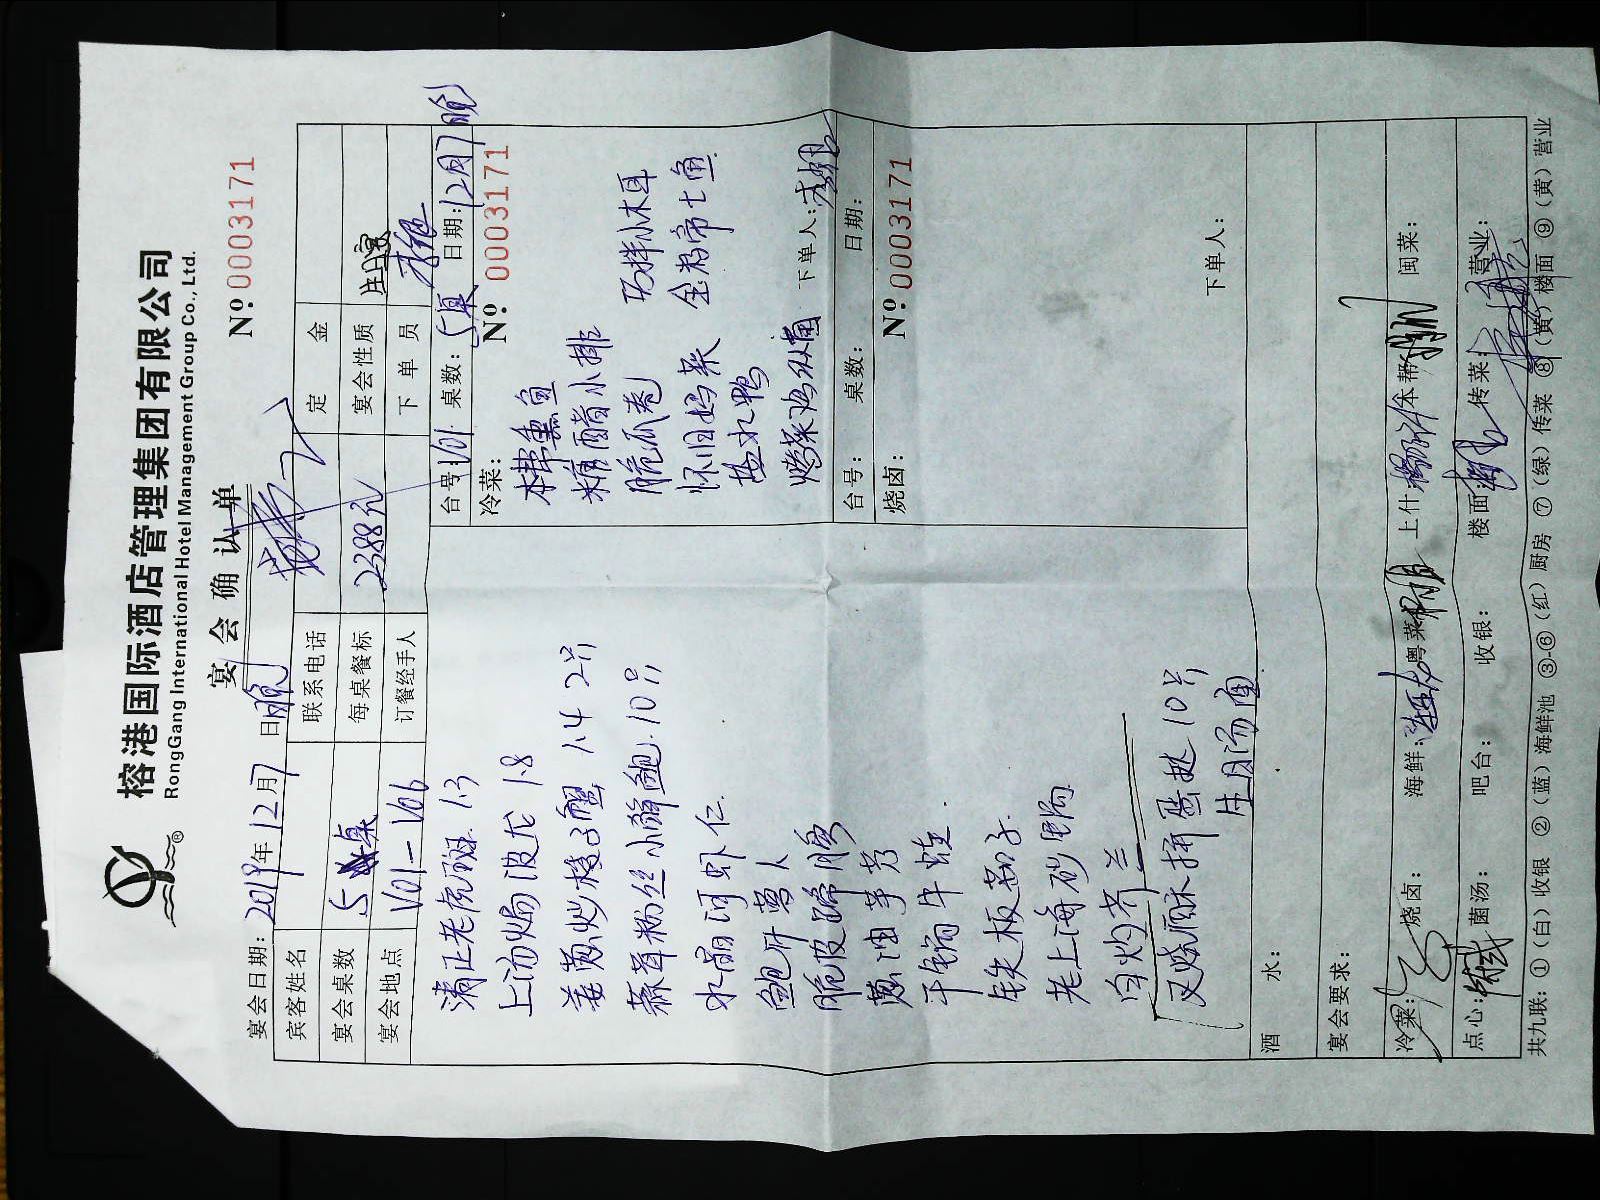 榕港国际酒店管理集团有限公司
RongGang International Hotel Management Group Co., Ltd.
宴会确认单
Nº 0003171
宴会日期: 2019年12月7日晚
宾客姓名 联系电话 定金
宴会桌数 5桌 每桌餐标 2388元 宴会性质 生日宴
宴会地点 V01-V06 订餐经手人 下单员
清正老虎斑 1.3
上汤焗波龙 1.8
姜葱炒梭子蟹 1.4 2只
蒜茸粉丝小鲜鲍 10只
水晶河虾仁
脆皮蹄膀
葱油芋艿
干锅牛蛙
铁板茄子
老上海砂锅
白灼芥兰
叉烧酥拼蛋挞 10只
生日汤面
台号: V01 桌数: 5桌 日期: 12月7晚
冷菜: Nº 0003171
本帮熏鱼
糖醋小排
脆瓜卷
盐水鸭
巧拌小木耳
下单人:
台号: 桌数: 日期:
烧卤: Nº 0003171
下单人:
酒水:
宴会要求:
冷菜: 烧卤: 海鲜: 粤菜 上什: 本帮 闽菜:
点心: 菌汤: 吧台: 收银: 楼面: 传菜: 营业:
共九联: ①(白)收银 ②(蓝)海鲜池 ③-⑥(红)厨房 ⑦(绿)传菜 ⑧(黄)楼面 ⑨(黄)营业